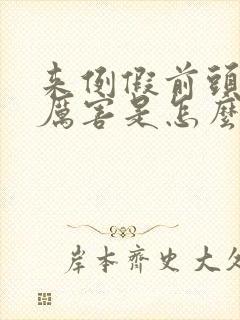 来例假前頭
厲害是怎麼
岸本齊史大久